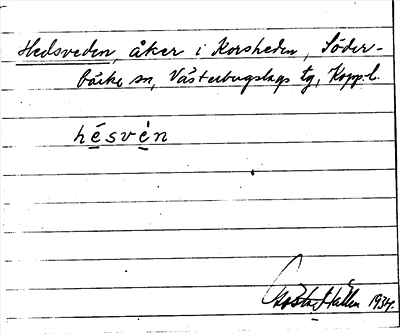 Hedsveden, åker i Korsheden, Söder-
bärke sn, Västerbergslags tg, Kopp.l.
hésvèn
Gösta Hallén 1934.